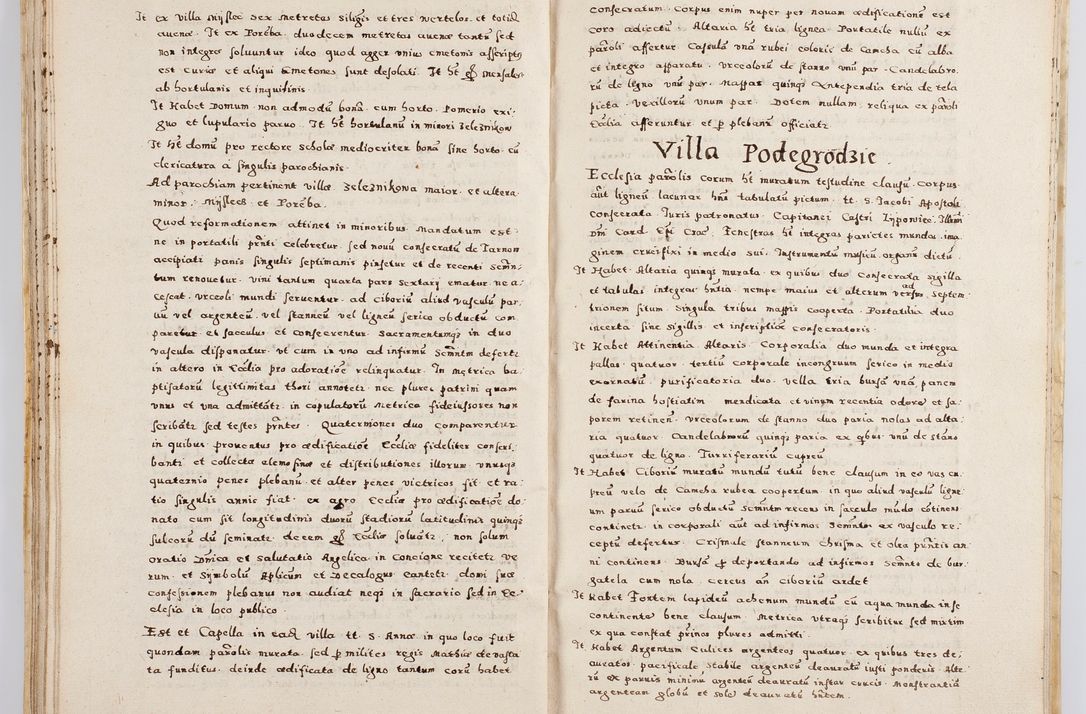 It ex villa Myslec sex metretas siliginis et tres vertelos et totid
auenæ. It ex Poreba duodecem metretas auenæ tantu sed
non integre soluuntur ideo quod agger vnius cmetonis asscriptq
est curiæ et aliqui Cmetones sunt desolati. It ht mensales
ab hortulanis et inquilinis.
It Habet Domum non admodu bona cum horto Pomerio exi,
guo et lupulario paruo. It ht hortulanu in minori Zelesnikow
It ht domu pro rectore scholæ mediocriter bona sine horto cu
clericatura à singulis parochianis.
Ad parochiam pertinent villæ Zeleznikowa maior et altera
minor, Myslecz et Poreba.
Quod reformationem attinet in minoribus Mandatum est
ne in portatili pnti celebretur sed nouu consecratu de Tarnow
accipiati panis singulis septimanis pinsetur et de recenti Semn,
tum renouetur. Vini tantum quarta pars Sextarij ematur ne a,
cescat vrceoli mundi seruentur ad ciboriu aliud vasculu par
uu vel argenteu vel stanneu vel ligneu serico obductu com
paretur et sacculus et conseruentur Sacramentumq in duo
vascula disponatur vt cum in vno ad infirmu Semntm defertr
in altero in Ecclia pro adoratioe relinquatur. In metrica ba
ptisatoru legittimitas thori annotetr nec plures patrini quam
vnus et vna admittatr in copulatoru Metrica fideiussores non
scribatr sed testes pntes. Quaterniones duo comparentur
in quibus prouentus pro ædificatioe Eccliæ fideliter conscri
bantr et collectæ elemosinæ et distributiones illorum vnusqs
quaternio penes plebanu et alter penes victricos sit et ra,
tio singulis annis fiat ex agro Eccliæ pro ædificatioe do,
nato cum sit longitudinis duoru stadioru latitudinis quinqs
sulcoru du seminatr decem Eccliæ soluatr, non solum
oratio Dnica et salutatio Angelica in Concione recitetr ve
rum et Symbolu Aplicum et Decalogus cantetr domi suæ
confessionem plebanus non audiat neqs in sacrario sed in Ec
clesia in loco publico.
Est et Capella in ead villa tt S. Annæ in quo loco fuit
quondam parolis murata sed p milites regis Mathiæ deuasta
ta funditus deinde ædificata de ligno tantum coru habet
consecratum. Corpus enim nuper per nouam ædificatione est
coro adiectu. Altaria ht tria lignea. Portatile nulla ex
paroli affertur Casula vna rubei coloris de Camcha cu alba
et integro apparatu. Vrceoloru de stanno vnu par. Candelabro,
ru de ligno vnu par. Mappas quinqs Antependia tria de tela
picta. vexilloru vnum par. Dotem nullam, reliqua ex paroli
Ecclia afferuntur et p plebanu officiatr.
Villa Podegrodzie.
Ecclesia parolis corum ht muratum testudine clausu. Corpus
aut ligneu lacunar hns tabulatu pictum. tt S. Jacobi Apostoli
consecrata. Juris patronatus Capitanei Castri Lypowiec. Illmi
Dni Card. Epi Crac. Fenestras ht integras parietes mundos ima,
ginem crucifixi in medio sui. Instrumentu musicu organu dictu.
It Habet Altaria quinqs murata ex quibus duo consecrata sigilla
et tabulas integras hntia nempe maius et alterum versus ad Septem
trionem situm. Singula tribus mappis cooperta. Portatilia duo
incerta sine sigillis et inscriptioe consecratoris.
It Habet Attinentia Altaris Corporalia duo munda et integra
pallas quatuor tertiu corporale incongruum serico in medio
exornatu. purificatoria duo. vella tria bursa vna, panem
de farina hostiatim mendicata et vinum recentia odore et sa,
porem retinen. Vrceolorum de stanno duo paria nolas ad alta,
ria quatuor. Candelabroru quinqs paria ex qbus vnu de stano
quatuor de ligno. Turriferariu cupreu.
It Habet Ciboriu muratu mundu tutu bene clausum in eo vas cu,
preu velo de Camcha rubea coopertum in quo aliud vasculu ligne
um paruu serico obductu Semntm recens in sacculo mudo cotinens
continetr in corporali aut ad infirmos Semntm ex vasculo re,
ceptu defertur. Crismale stanneum Chrisma et olea pntis an,
ni continens. Bursa p deportando ad infirmos Semnto de bur
gatela cum nola. cereus an ciboriu ardet
It Habet Fontem lapideu achenum mundu cu aqua munda in se
continente bene clausum. Metrica vtraqs scribitur sed mixtim
ex qua constat prinos plures admitti.
It Habet Argentum Calices argenteos quatuor ex quibus tres de,
auratos. pacificale stabile argenteu deauratu iusti ponderis. Alte,
ru ex paruis minimu argenteu deauratu instar crucis. Monstrantia
argenteam globu et sole deauratu hntem.